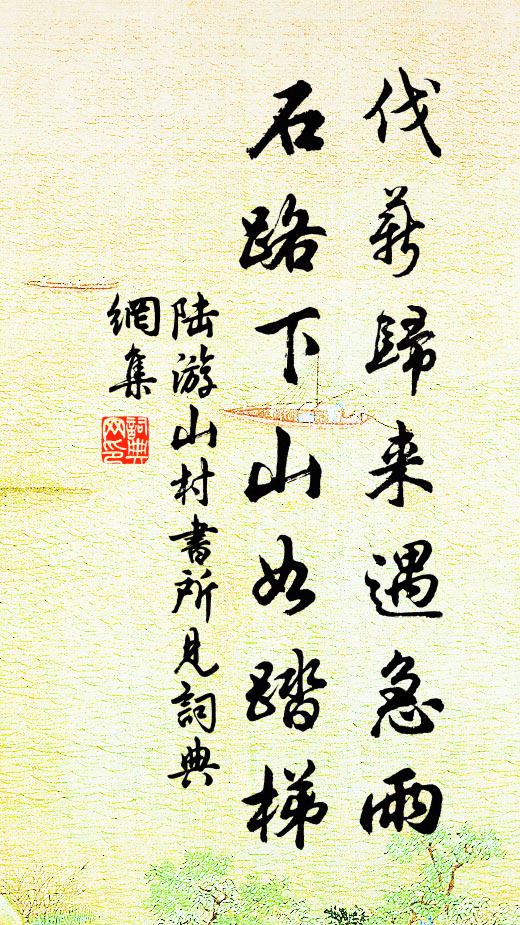 伐薪歸来遇急雨
石路下山如踏梯
陆游山村書所見詞典
網集
詞典
网印